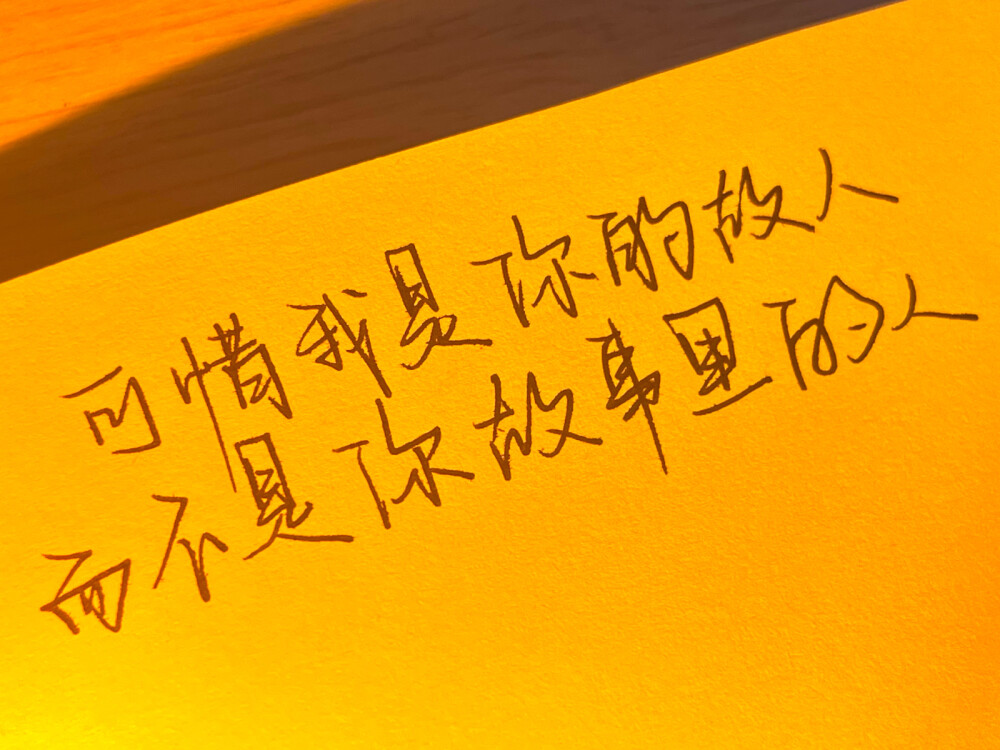 可惜我是你的故人
而不是你故事里的人